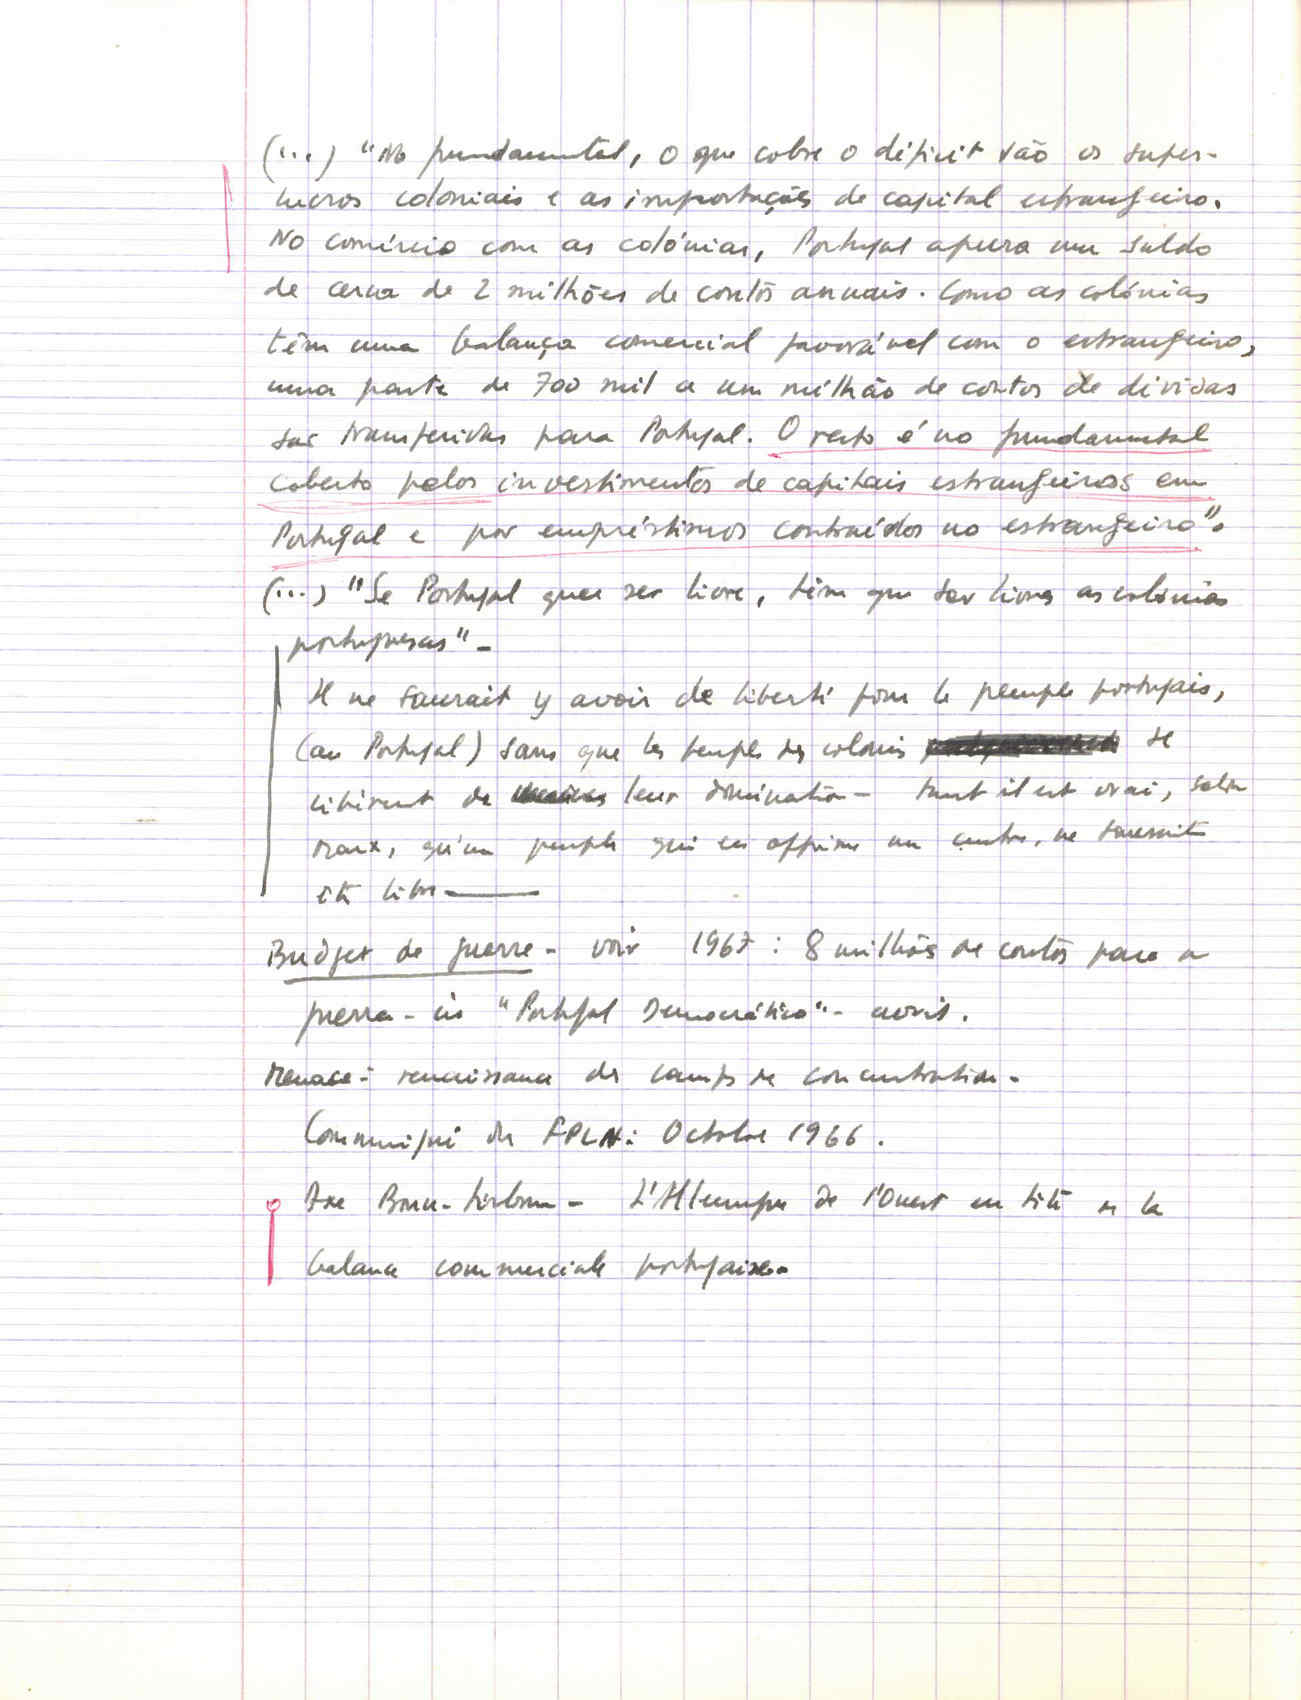 (...) "No fundamental, o que cobre o déficit são os super-
lucros coloniais e as importações de capital estrangeiro.
No comércio com as colónias, Portugal apura um saldo
de cerca de 2 milhões de contos anuais. Como as colónias
têm uma balança comercial favorável com o estrangeiro,
uma parte de 700 mil a um milhão de contos de dividas
são transferidas para Portugal. O resto é no fundamental
coberto pelos investimentos de capitais estrangeiros em
Portugal e por empréstimos contraídos no estrangeiro".
(...) "Se Portugal quer ser livre, têm que ser livres as colónias
portuguesas" -
Il ne saurait y avoir de liberté pour le peuple portugais,
(au Portugal) sans que les peuples des colonies se
libèrent de leur domination - tant il est vrai, selon
Marx, qu'un peuple qui en opprime un autre, ne saurait
être libre -
Budget de guerre - voir 1967 : 8 milhões de contos para a
guerra - in "Portugal Democrático" - avril.
Menace : renaissance des camps de concentration -
Communiqué du FPLN : Octobre 1966.
Axe Bonn-Lisbonne - L'Allemagne de l'Ouest en tête de la
balance commerciale portugaise -